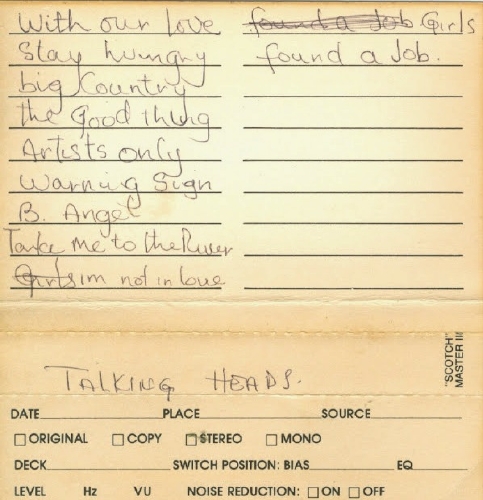 With our love
Stay hungry
big Country
the Good thing
Artists only
Warning Sign
B. Angel
Take me to the River
Girls im not in love
found a Job Girls
found a Job.
"SCOTCH"
MASTER III
TALKING HEADS.
DATE PLACE SOURCE
ORIGINAL COPY STEREO MONO
DECK SWITCH POSITION: BIAS EQ
LEVEL Hz VU NOISE REDUCTION: ON OFF